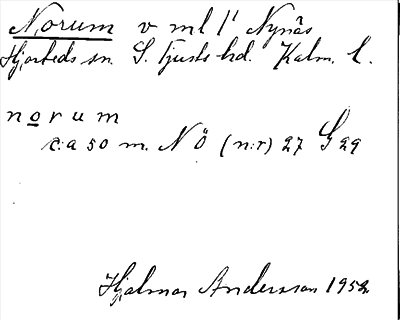 Norum v ml l' Nynäs
Hjorteds sn. S. Tjusts hd. Kalm. l.
norum
c:a 50 m. NÖ (n:r) 27 G 29
Hjalmar Andersson 1952